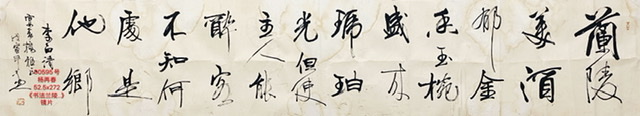 蘭陵
美酒
郁金
香玉椀
盛来
琥珀
光但使
主人能
醉客
不知何
處是
他鄉
李白詩
00595号
杨再春
52.5x272
《书法兰陵..》
镜片